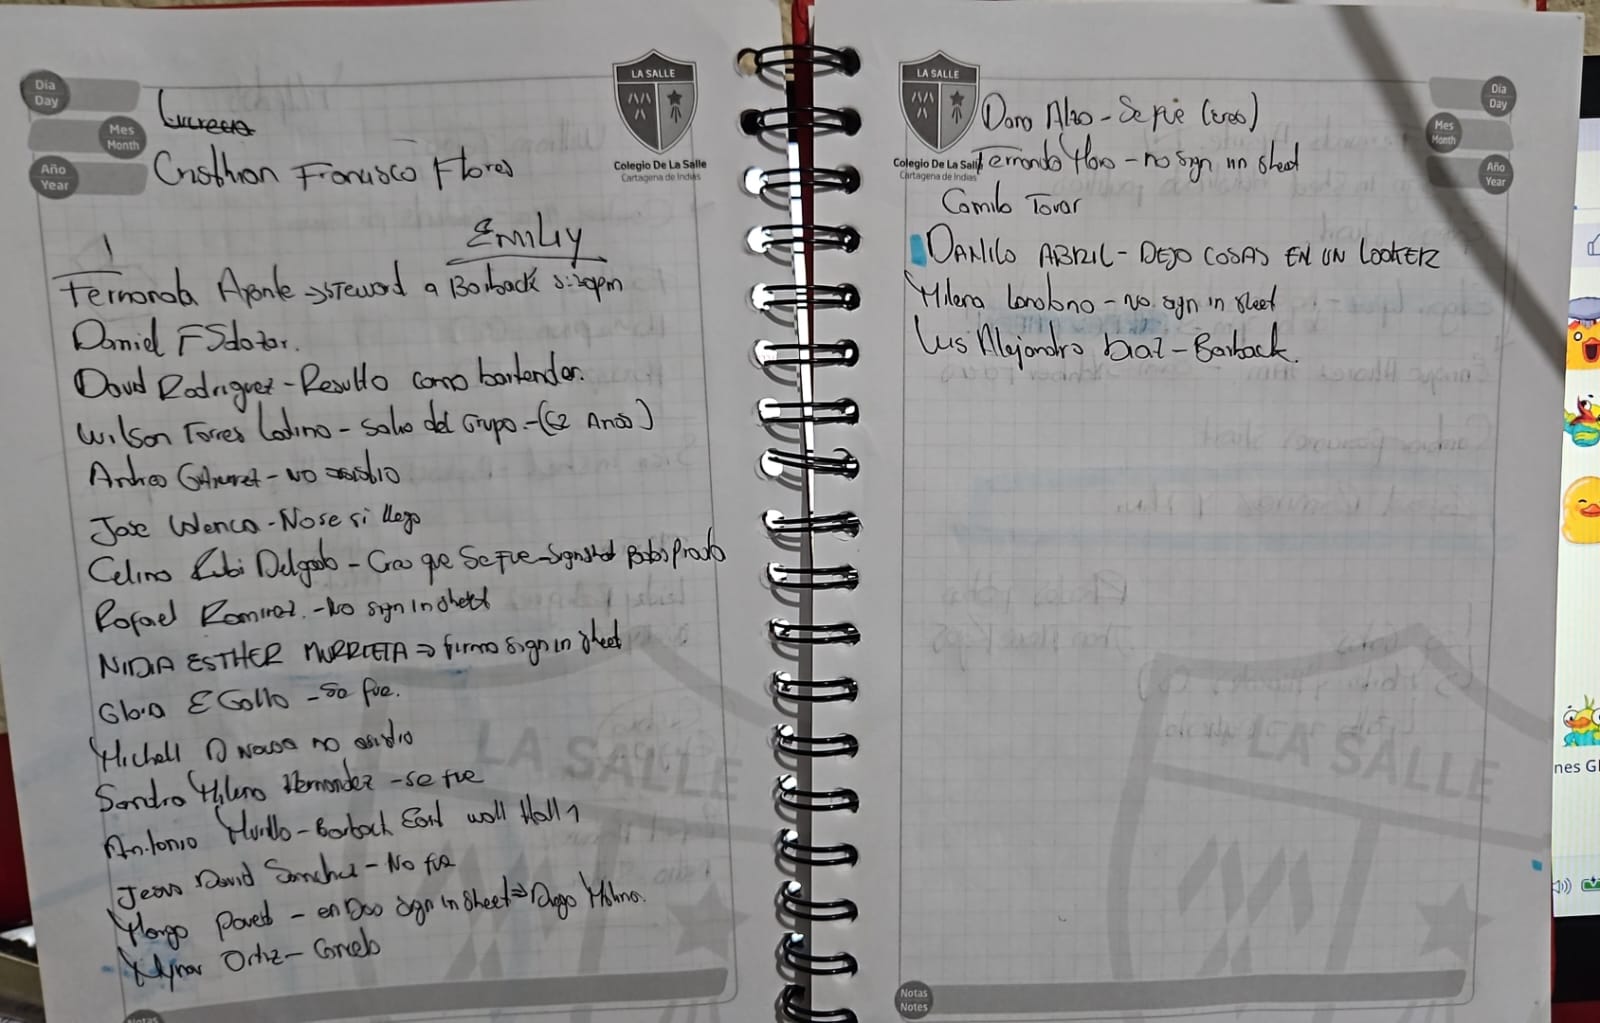 Día
Day
Mes
Month
Año
Year
LA SALLE
Colegio De La Salle
Cartagena de Indias
Cristhian Francisco Flores
Emiliy
1
Fernanda Aponte → steward a Barback 5:20pm
Daniel
David Rodriguez - Resulto como bartender.
Wilson Torres Ladino - salio del Grupo - (62 Anos)
Andrea - no asistio
Jose - No se si llego
Celina Rubi Delgado - Creo que Se fue -
Rafael Ramirez. - No sign in shett
NIDIA ESTHER MURRIETA ⇒ firmo sign in sheet
Gloria E Gallo - Se fue.
Michell no asistio
Sandra Milena Hernandez - se fue
Antonio Murillo - Barback East wall Hall 1
Jesus David Sanchez - No fue
Poved - en Doo sign in sheet ⇒
Ortiz - Cancelo
LA SALLE
Notas
LA SALLE
Colegio De La Salle
Cartagena de Indias
Día
Day
Mes
Month
Año
Year
- Se fue (creo)
Fernando - no sign in sheet
Camilo Tovar
DANILO ABRIL - DEJO COSAS EN UN LOOKER
Milena Londono - No sign in sheet
Luis Alejandro Diaz - Barback.
LA SALLE
Notas
Notes
nes Gl